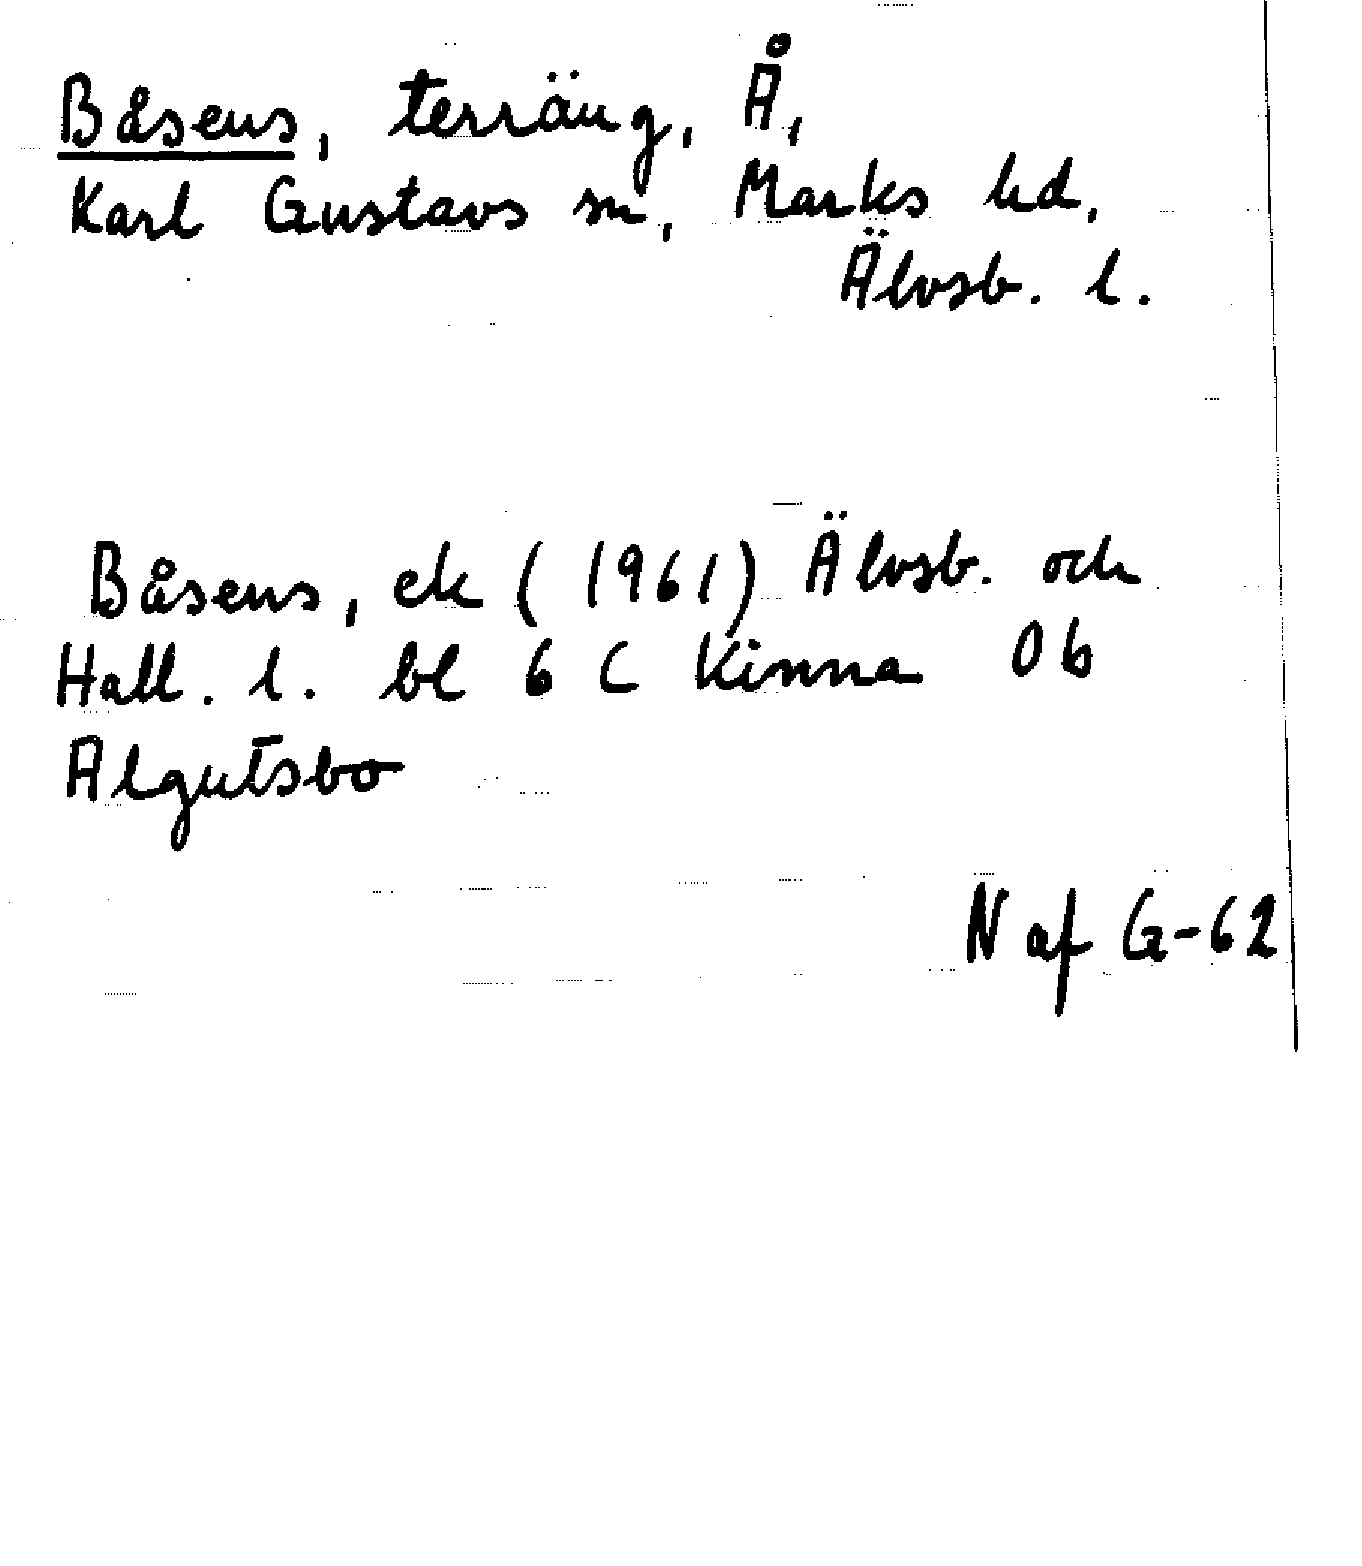 Båsens, terräng, Å,
Karl Gustavs sn, Marks hd,
Älvsb. l.
Båsens, ek (1961) Älvsb. och
Hall. l. bl 6 C Kinna 0b
Algutsbo
N af G-62